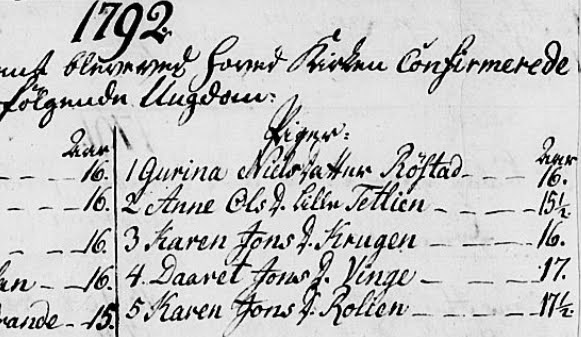 1792.
blev ved Hoved Kirken Confirmerede
følgende Ungdom:
Piger:
Aar Aar
16. 1 Gurina Nielsdatter Röstad 16.
16. 2 Anne Ols D. lille Tetlien 15½.
16. 3 Karen Jons D. Krugen 16.
16. 4. Daaret Jons D. Vinge 17.
15. 5 Karen Jons D. Rolien 17½.